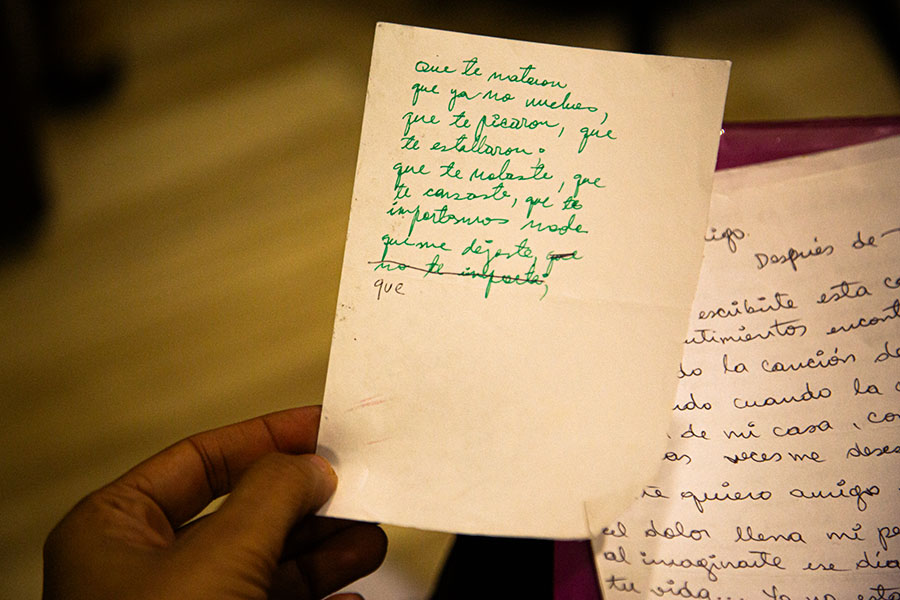 Que te mataron
que ya no vuelves,
que te picaron, que
te estallaron;
que te volaste, que
te cansaste, que te
importamos nada
que me dejaste, que
no te importa;
que
migo.
Después de
escribirte esta co
ntimientos encont
do la canción de
ndo cuando la c
de mi casa, con
as veces me dese
te quiero amigo
el dolor llena mi pe
al imaginarte ese día
tu vida... Ya no esta